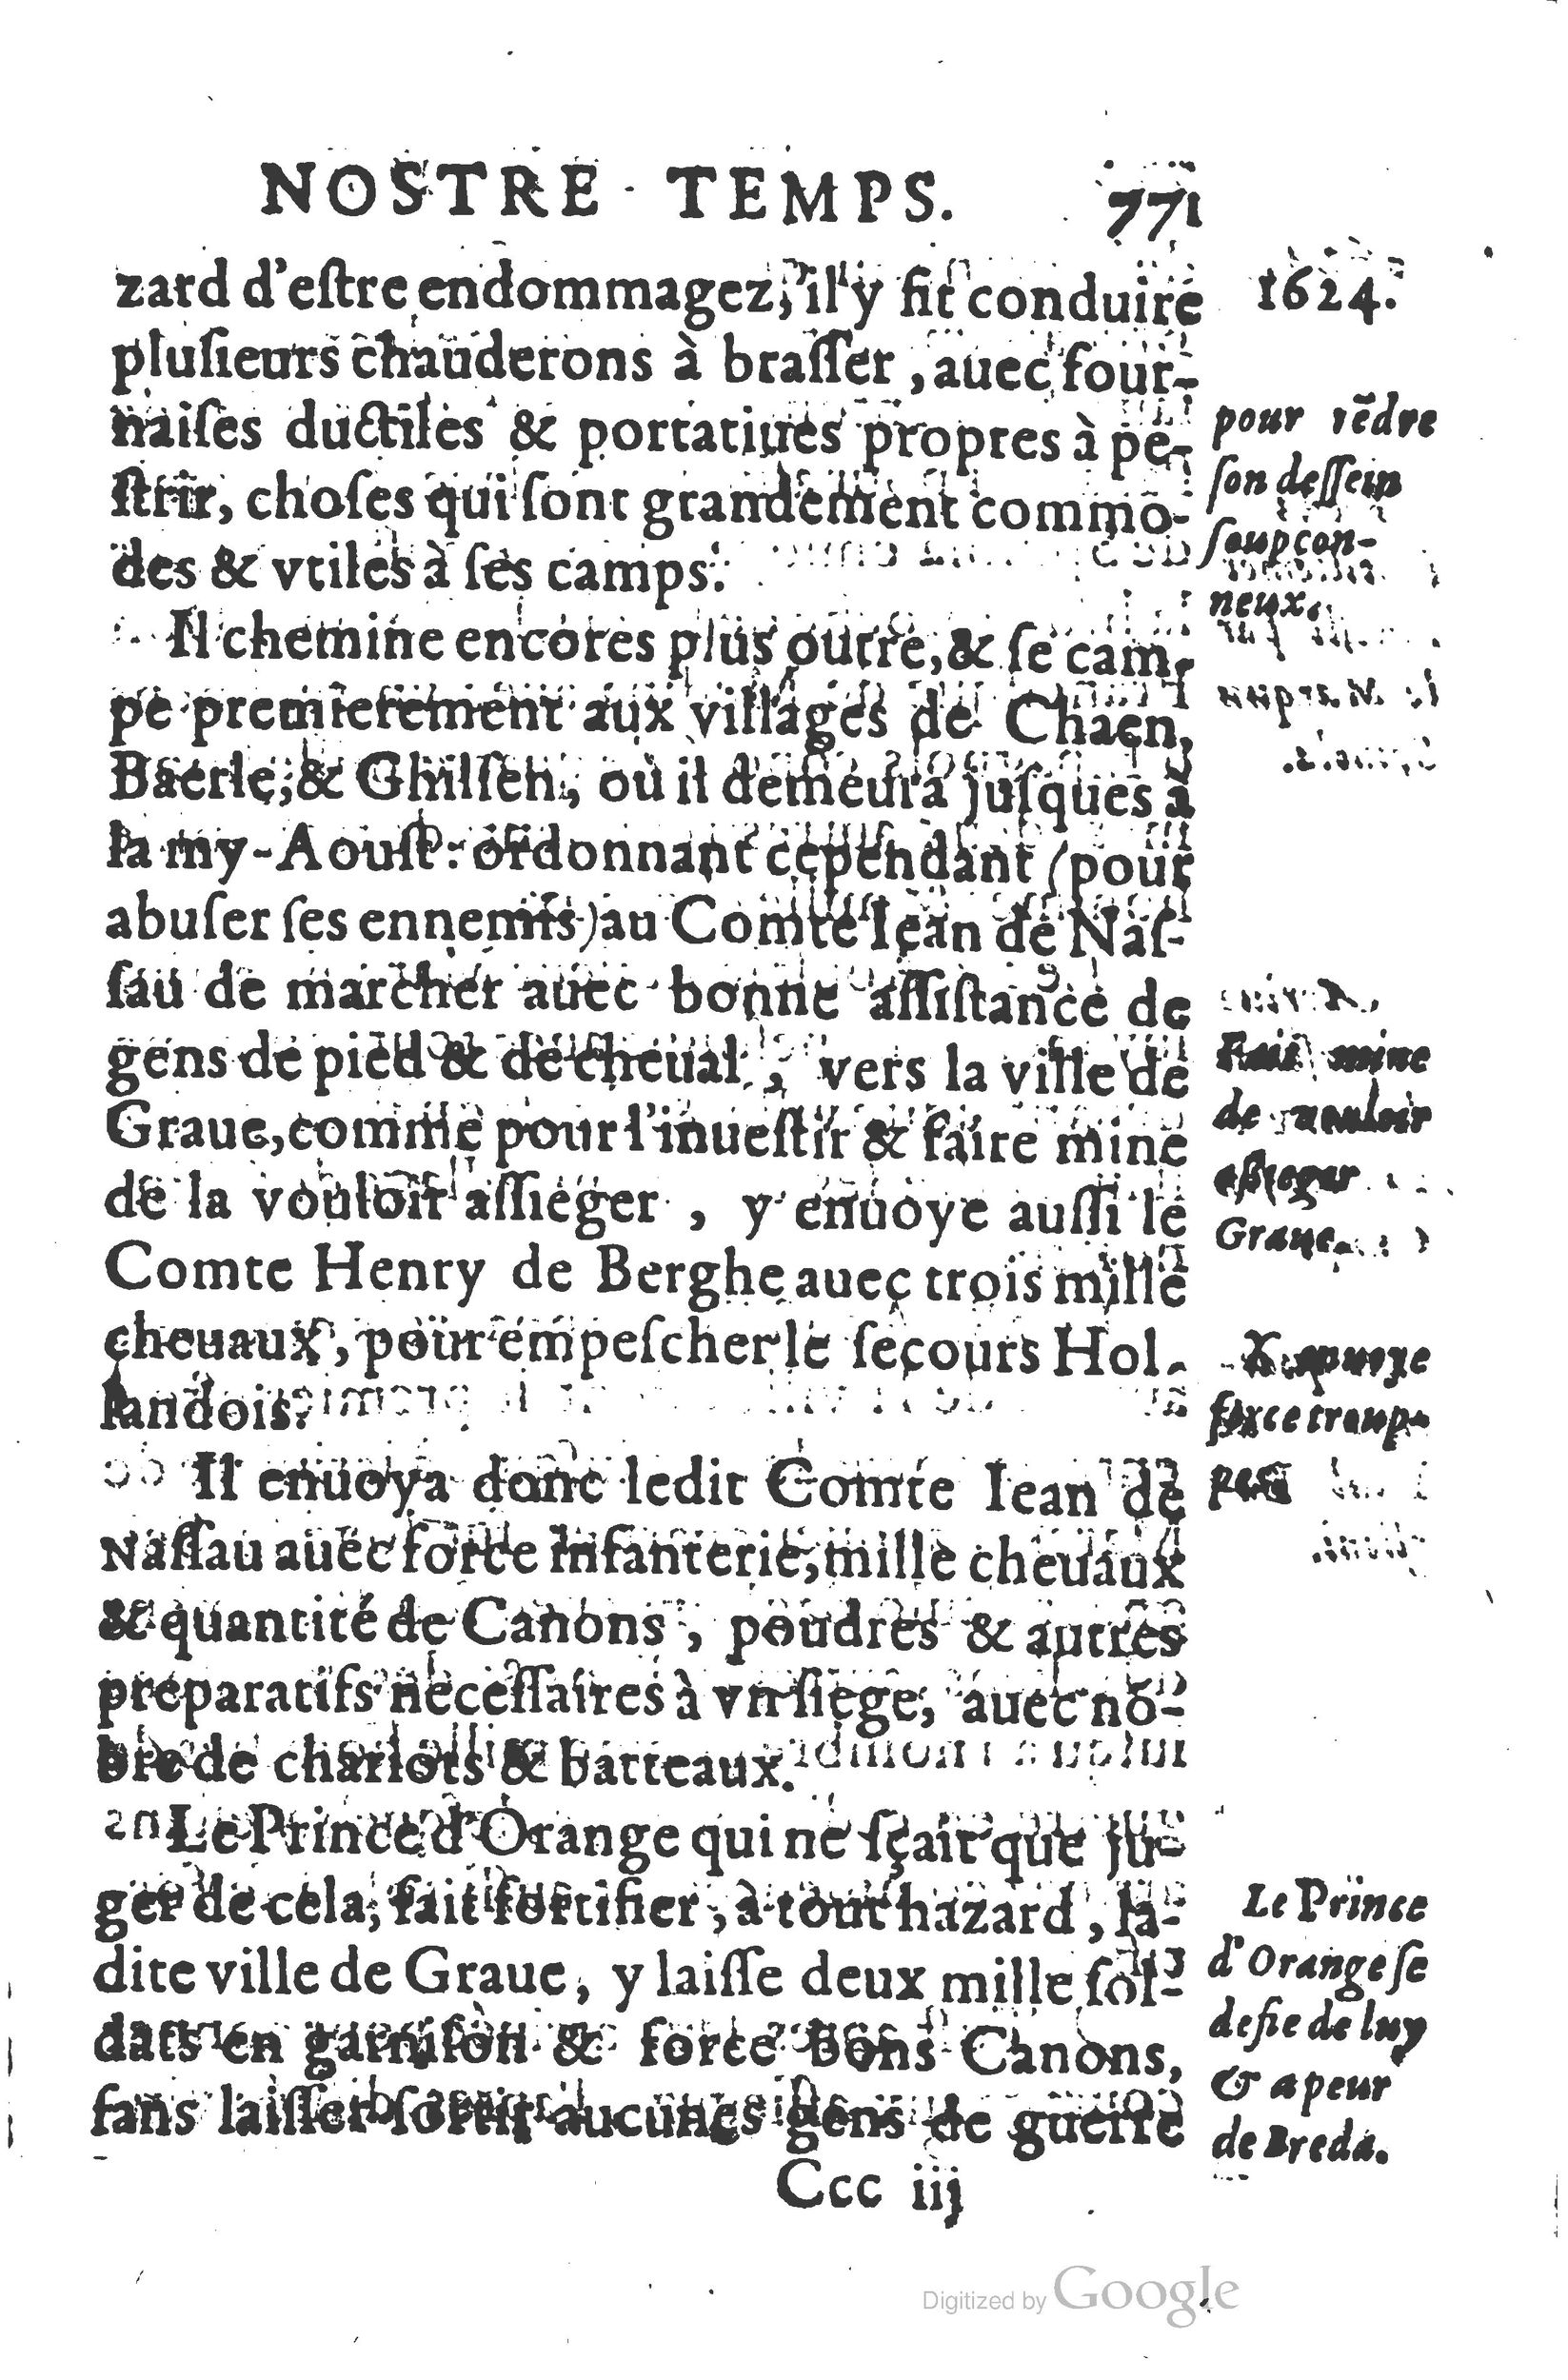 NOSTRE TEMPS. 771
zard d'eſtre endommagez, il y fit conduire
1624.
pluſieurs chauderons à braſſer, auec four-
naiſes ductiles & portatiues propres à pe-
ſtrir, choſes qui ſont grandement commo-
des & vtiles à ſes camps.
pour rẽdre
ſon deſſein
ſoupçon-
neux.
Il chemine encores plus outre, & ſe cam-
pe premierement aux villages de Chaen,
Baerle, & Ghilſen, où il demeura juſques à
la my-Aouſt: ordonnant cependant (pour
abuſer ſes ennemis) au Comte Iean de Naſ-
ſau de marcher auec bonne aſſiſtance de
gens de pied & de cheual, vers la ville de
Graue, comme pour l'inueſtir & faire mine
de la vouloir aſſieger, y enuoye auſſi le
Comte Henry de Berghe auec trois mille
cheuaux, pour empeſcher le ſecours Hol-
landois.
Fait mine
de vouloir
aſsieger
Graue.
Il enuoya donc ledit Comte Iean de
Naſſau auec force infanterie, mille cheuaux
& quantité de Canons, poudres & autres
preparatifs neceſſaires à vn ſiege, auec nõ-
bre de chariots & batteaux.
Y enuoye
force troup-
pes
Le Prince d'Orange qui ne ſçait que ju-
ger de cela, fait fortifier, à tout hazard, la-
dite ville de Graue, y laiſſe deux mille ſol-
dats en garniſon & force bons Canons,
ſans laiſſer ſortir aucunes gens de guerre
Le Prince
d'Orange ſe
defie de luy
& a peur
de Breda.
Ccc iij
Digitized by Google